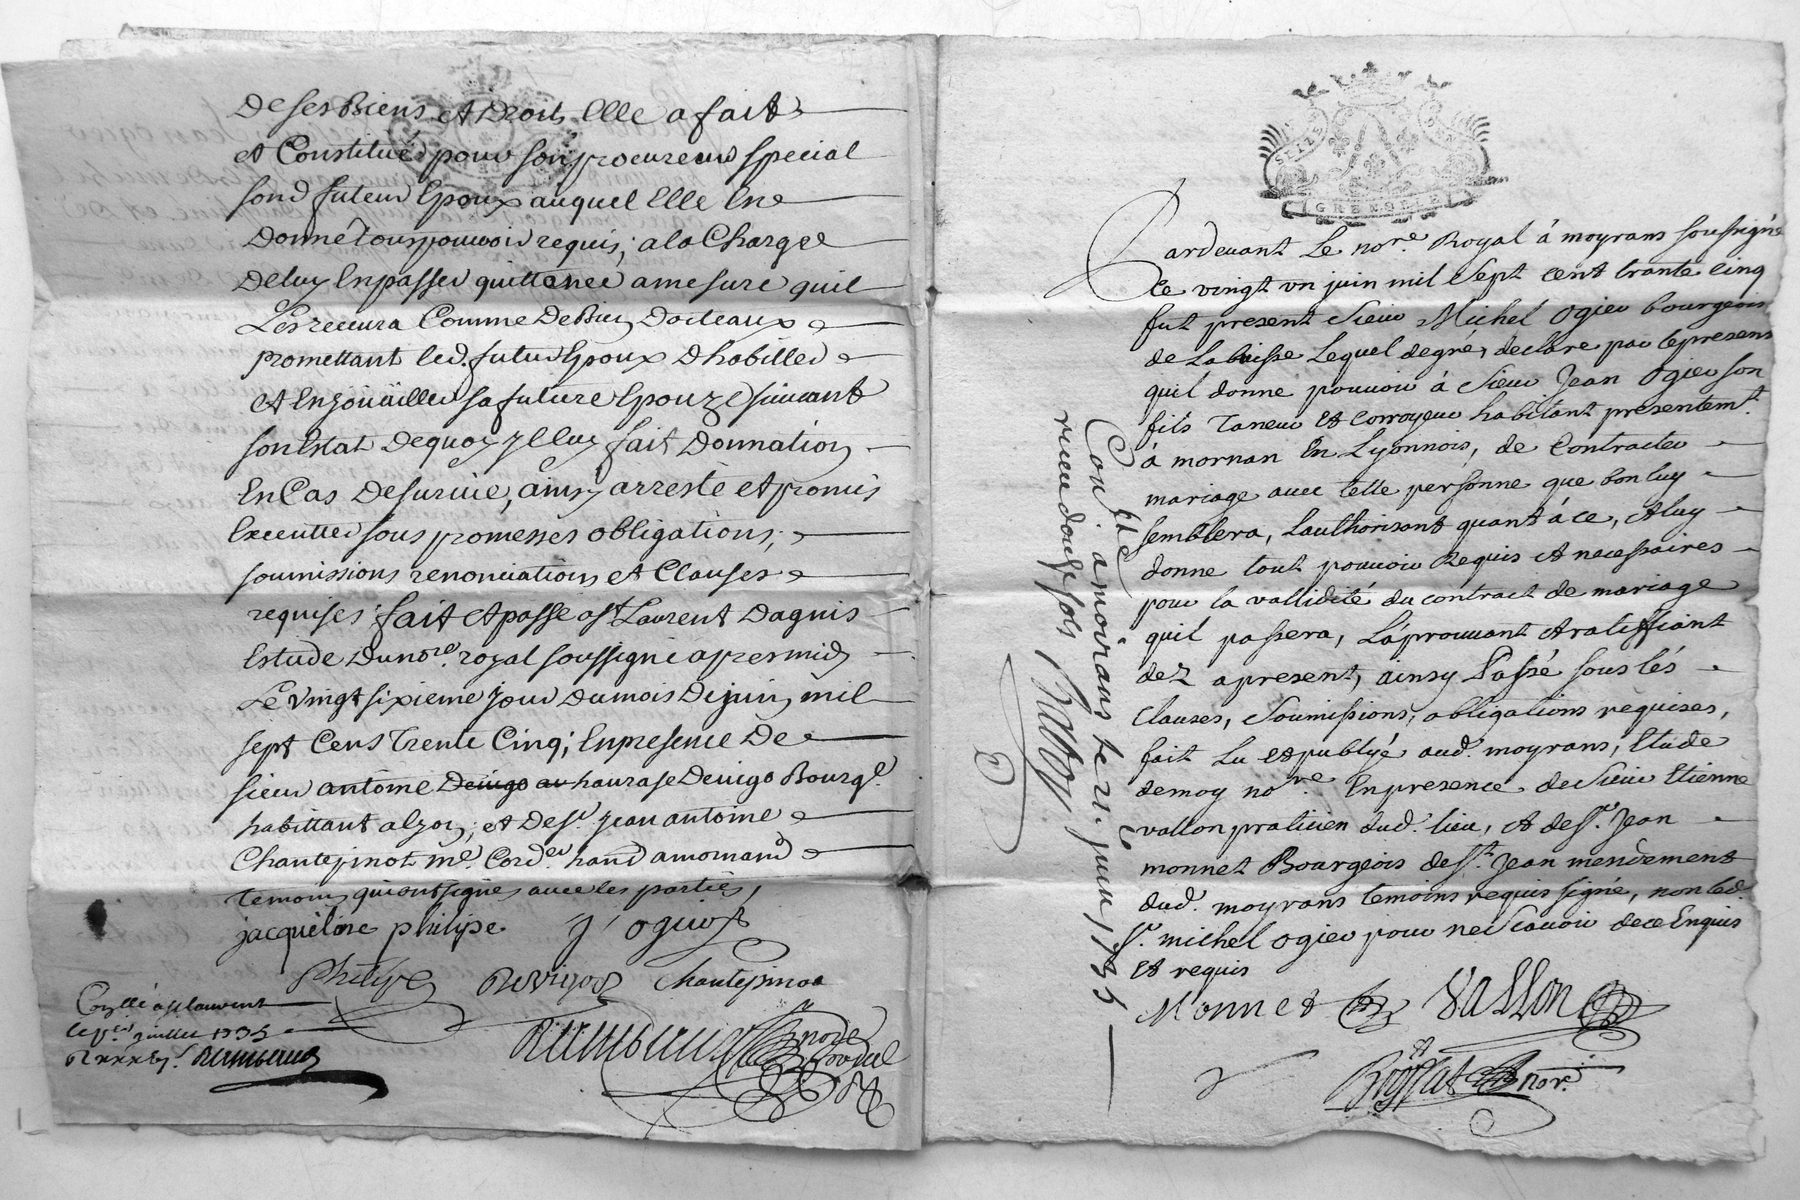 De ses Biens et Droits Elle a fait
et Constitué pour son procureur special
sond futeur Epoux auquel Elle En
Donne tous pouvoir requis, a la Charge
De luy En passer quittance a mesure quil
Les recevra Comme De Biens Doiteaux
promettant led. futur Epoux Dhabiller
et Enjoüailler sa future Epouze suivant
son Estat De quoy Il luy fait Donnation
En Cas De survie, ainsy arresté et promis
Executter sous promesses obligations,
soumissions renonciations et Clauses
requises fait et passé a St Laurent Dagnis
Estude Du nore. royal soussigné apres midy
Le vingt sixieme jour Du mois De juin mil
sept Cens Trente Cinq; En presence De
sieur antoine Devigo Bourge.
habittant a lyon, et De sr. jean antoine
Chantepinot me. Cordr. a mornand
temoins qui ont signés avec les parties,
jacquéline philipe J ogier
Philipe Devigos Chantepinot
Conllé a st laurent
le pr. juillet 1735
GRENOBLE
Pardevant Le nore. Royal à moyrans soussigné
Ce vingt un juin mil sept cent trante cinq
fut present sieur Michel Ogier bourgeois
de La buisse Lequel de gré, declare par le present
quil donne pouvoir à sieur Jean Ogier son
fils Taneur et corroyeur habitant presentemt.
à mornan En Lyonnois, de Contracter
mariage avec telle personne que bon luy
semblera, Lauthorisant quant à ce, et luy
donne tout pouvoir Requis et necessaires
pour la vallidité du contract de mariage
quil passera, Laprouvant et ratiffiant
dez a present, ainsy Passé sous les
clauses, soumissions, obligations requises,
fait Lu et publyé aud. moyrans, Etude
de moy nore. En presence de sieur Etienne
vallon praticien dud. lieu, et de sr. Jean
monnet Bourgeois de st. Jean mendement
dud. moyrans temoins requis signé, non led.
sr. michel ogier pour ne scavoir de ce Enquis
et requis
Monnet Vallon
Conllé a moirans le 21 juin 1735
receu douse sols